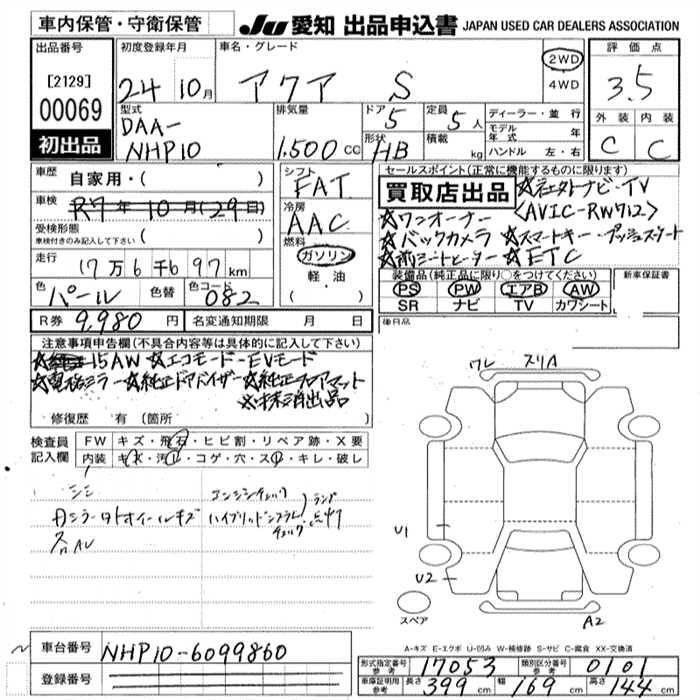 車内保管・守衛保管
JU 愛知 出品申込書 JAPAN USED CAR DEALERS ASSOCIATION
出品番号
[2129]
00069
初出品
初度登録年月
24 10月
車名・グレード
アクア S
2WD
4WD
評価点
3.5
外装 内装
C C
型式
DAA-
NHP10
排気量
1.500 CC
ドア 5
形状 HB
定員 5 人
積載 kg
ディーラー・並行
モデル年式 年
ハンドル 左・右
車歴 自家用・( )
車検 R7年10月(29日)
受検形態
車検付きのみ記入して下さい ( )
走行 17万6千697km
色 パール 色替 色コード 082
シフト
FAT
冷房
AAC
燃料
ガソリン
軽油
セールスポイント(正常に機能するものに限ります)
買取店出品 ☆社外ナビ・TV
<AVIC-RW712>
☆ワンオーナー
☆バックカメラ ☆スマートキー・プッシュスタート
☆前シートヒーター ☆ETC
装備品(純正品に限り○をつけてください)
PS PW エアB AW
SR ナビ TV カワシート
新車保証書
後日品
R券 9,980 円 名変通知期限 月 日
注意事項申告欄(不具合内容等は具体的に記入して下さい)
15AW ☆エコモード・EVモード
☆電格ミラー ☆純正ドアバイザー ☆純正フロアマット
☆未抹消出品
修復歴 有(箇所 )
検査員記入欄
FW キズ・飛石・ヒビ割・リペア跡・X要
内装 キズ・汚レ・コゲ・穴・スレ・キレ・破レ
シミ
エンジンチェック
ハイブリッドシステムチェック
ランプ点灯
ワレ スリA
U1
U2
A2
スペア
A-キズ E-エクボ U-凹み W-補修跡 S-サビ C-腐食 XX-交換済
車台番号 NHP10-6099860
登録番号
形式指定番号 参考 17053 類別区分番号 参考 0101
車庫証明用 参考 長さ 399 cm 幅 169 cm 高さ 144 cm